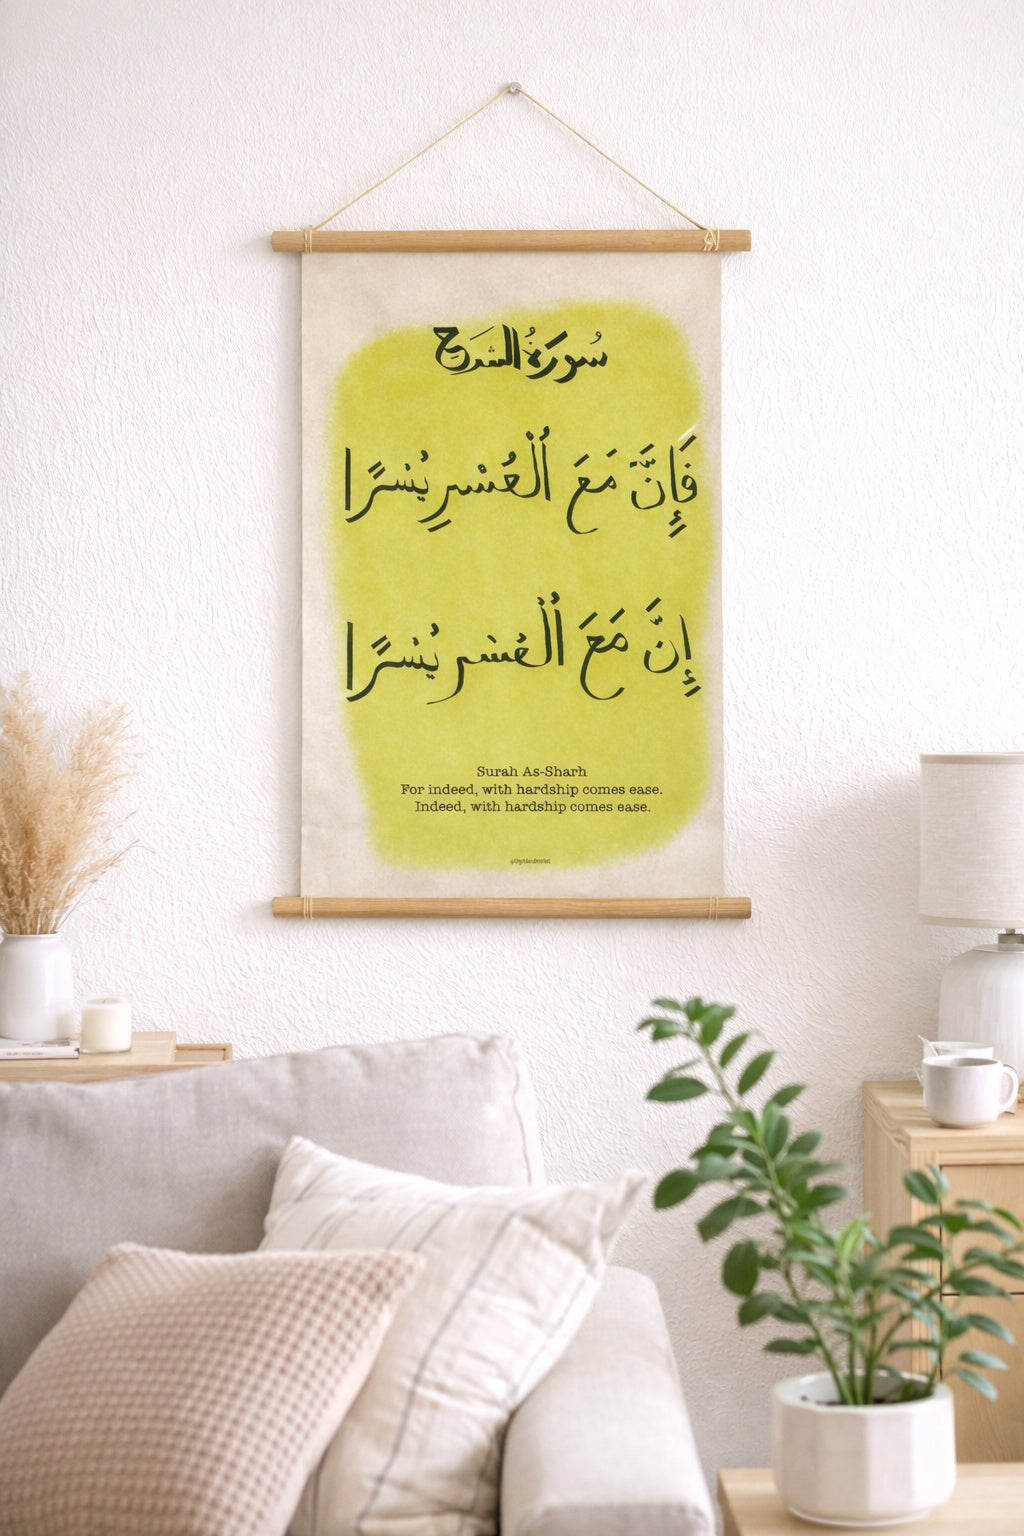 سُورَةُ الشرح
فَإِنَّ مَعَ الْعُسْرِ يُسْرًا
إِنَّ مَعَ الْعُسْرِ يُسْرًا
Surah As-Sharh
For indeed, with hardship comes ease.
Indeed, with hardship comes ease.